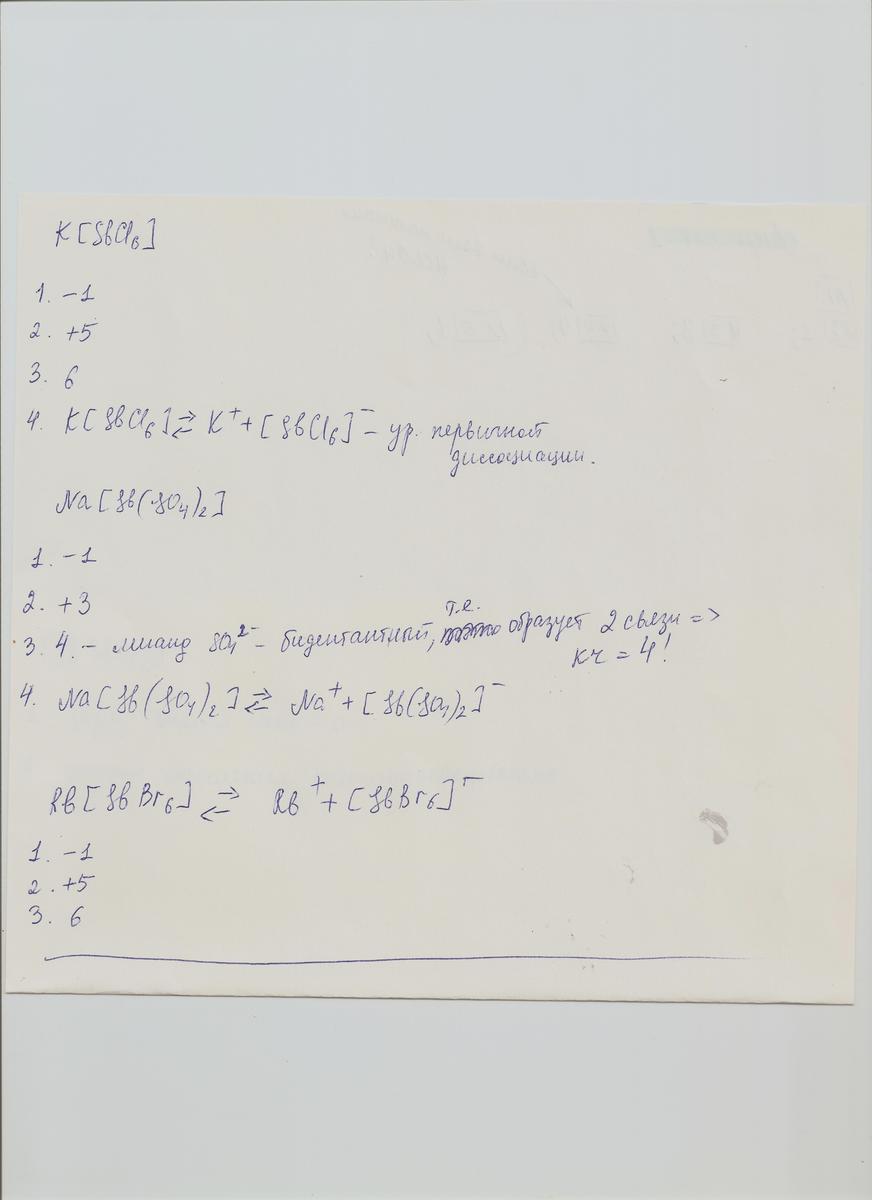 K[SbCl₆]
1. −1
2. +5
3. 6
4. K[SbCl₆] ⇄ K⁺ + [SbCl₆]⁻ – ур. первичной
диссоциации.
Na[Sb(SO₄)₂]
1. −1
2. +3
3. 4. – лиганд SO₄²⁻ – бидентантный, т.е. образует 2 связи =>
КЧ = 4!
4. Na[Sb(SO₄)₂] ⇄ Na⁺ + [Sb(SO₄)₂]⁻
Rb[SbBr₆] ⇄ Rb⁺ + [SbBr₆]⁻
1. −1
2. +5
3. 6